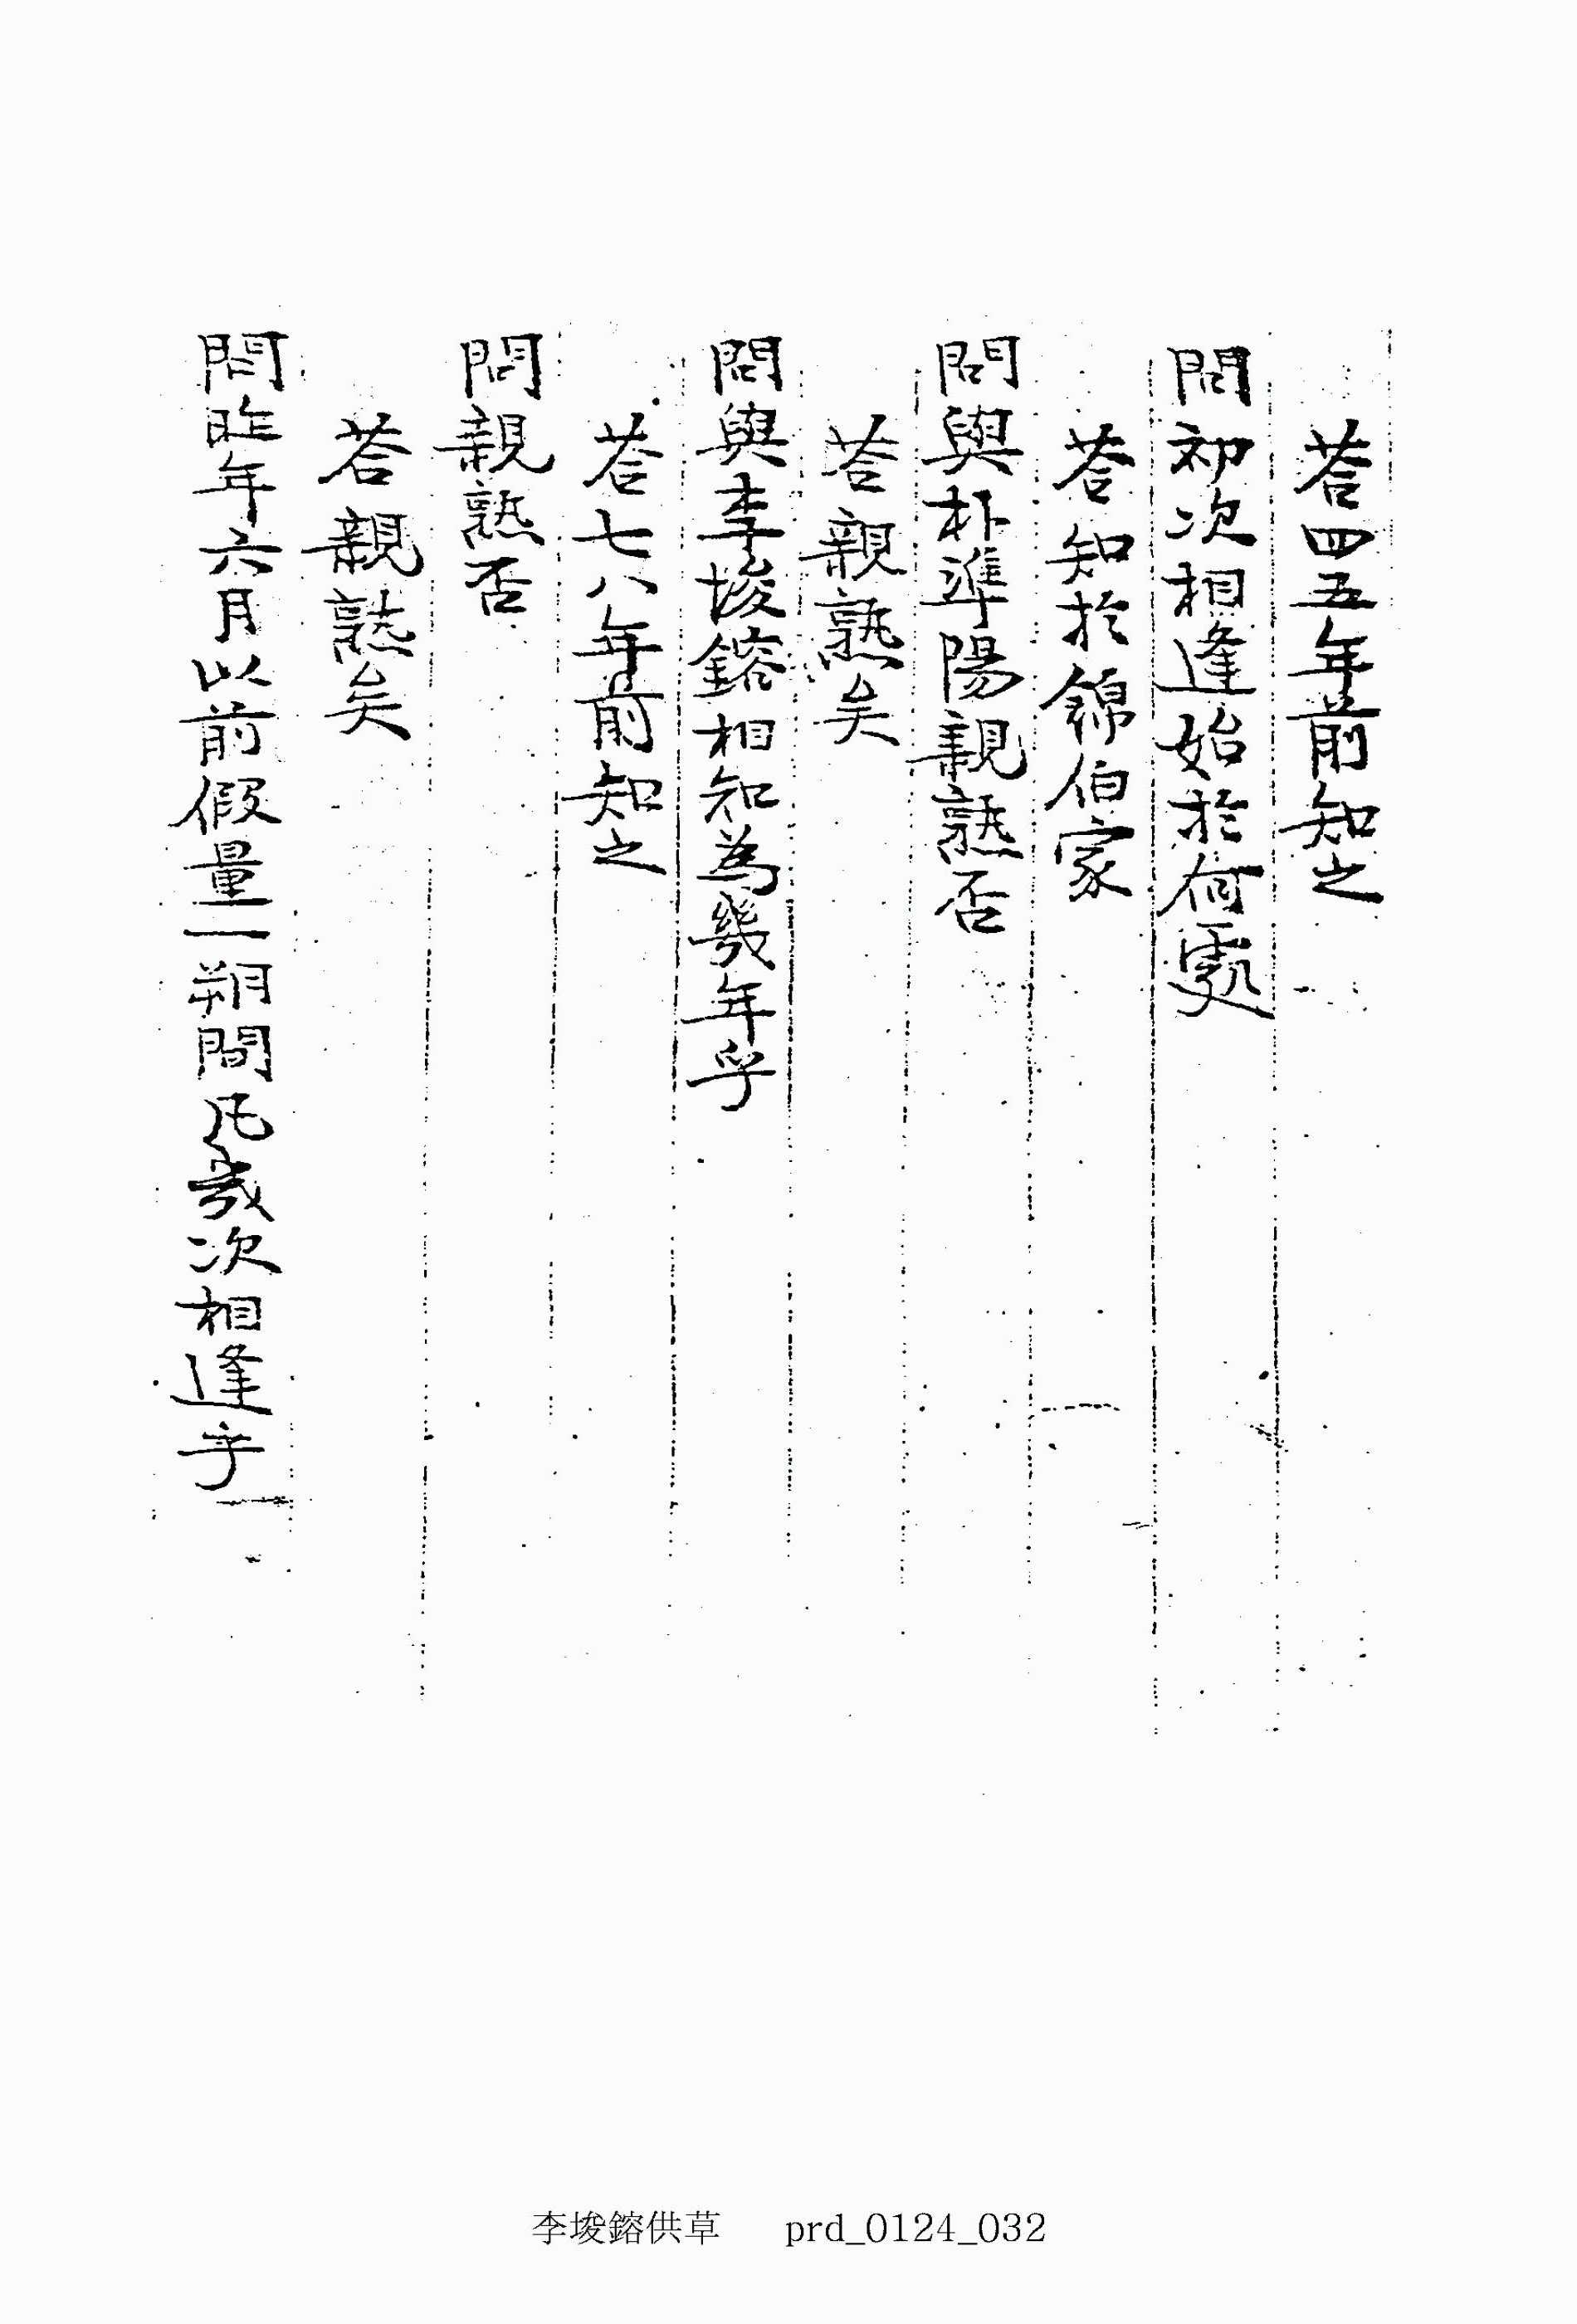 荅四五年前知之
問初次相逢始於何處
荅知於錦伯家
問與朴準陽親熟否
荅親熟矣
問與李埈鎔相知為幾年乎
荅七八年前知之
問親熟否
荅親熟矣
問昨年六月以前假量一朔間凡幾次相逢乎
李埈鎔供草 prd_0124_032